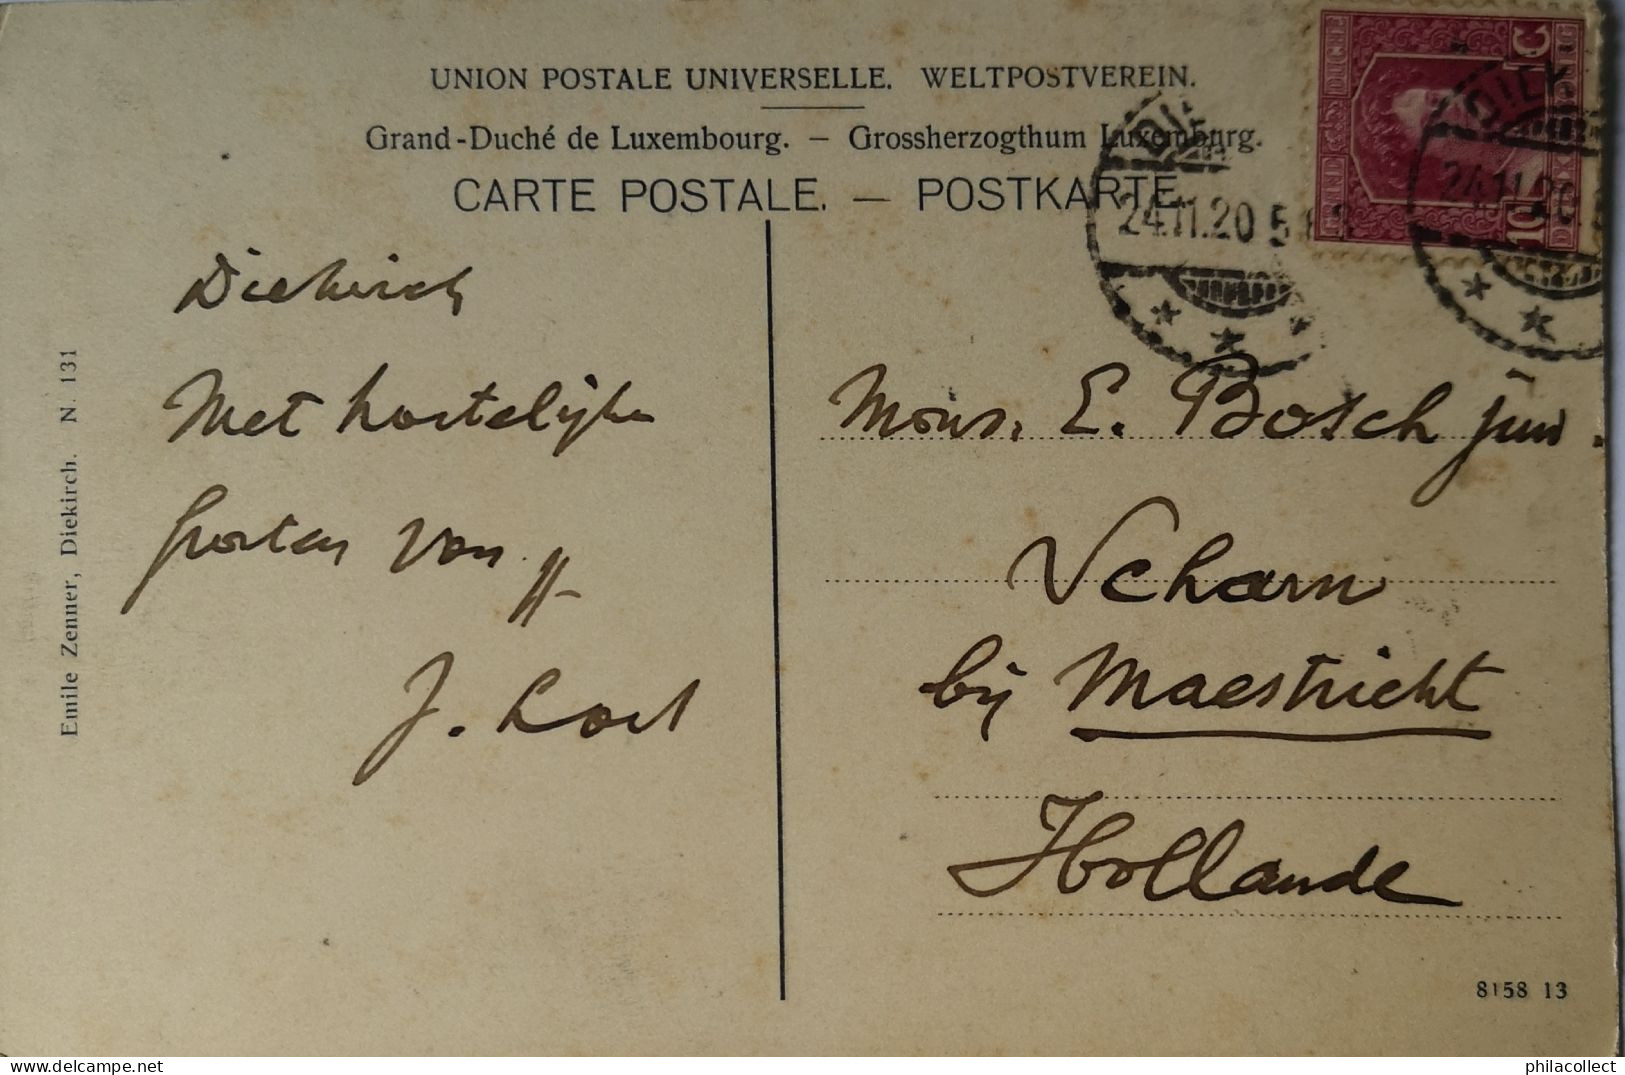 UNION POSTALE UNIVERSELLE. WELTPOSTVEREIN.
Grand-Duché de Luxembourg. – Grossherzogthum Luxemburg.
CARTE POSTALE. — POSTKARTE.
10 C
24.11.20 5
24.11.20
Diekirch
Met hartelijke
groeten van
J.
Emile Zenner, Diekirch. N. 131
Mons. E. Bosch jun.
Scharn
bij Maestricht
Hollande
8158 13
philacollect